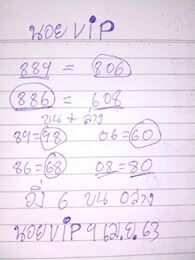 นอยVIP
889 = 806
886 = 608
บน + ล่าง
89=98 06=60
86=68 08=80
วิ่ง 6 บน 0 ล่าง
นอยVIP 9 เม.ย. 63